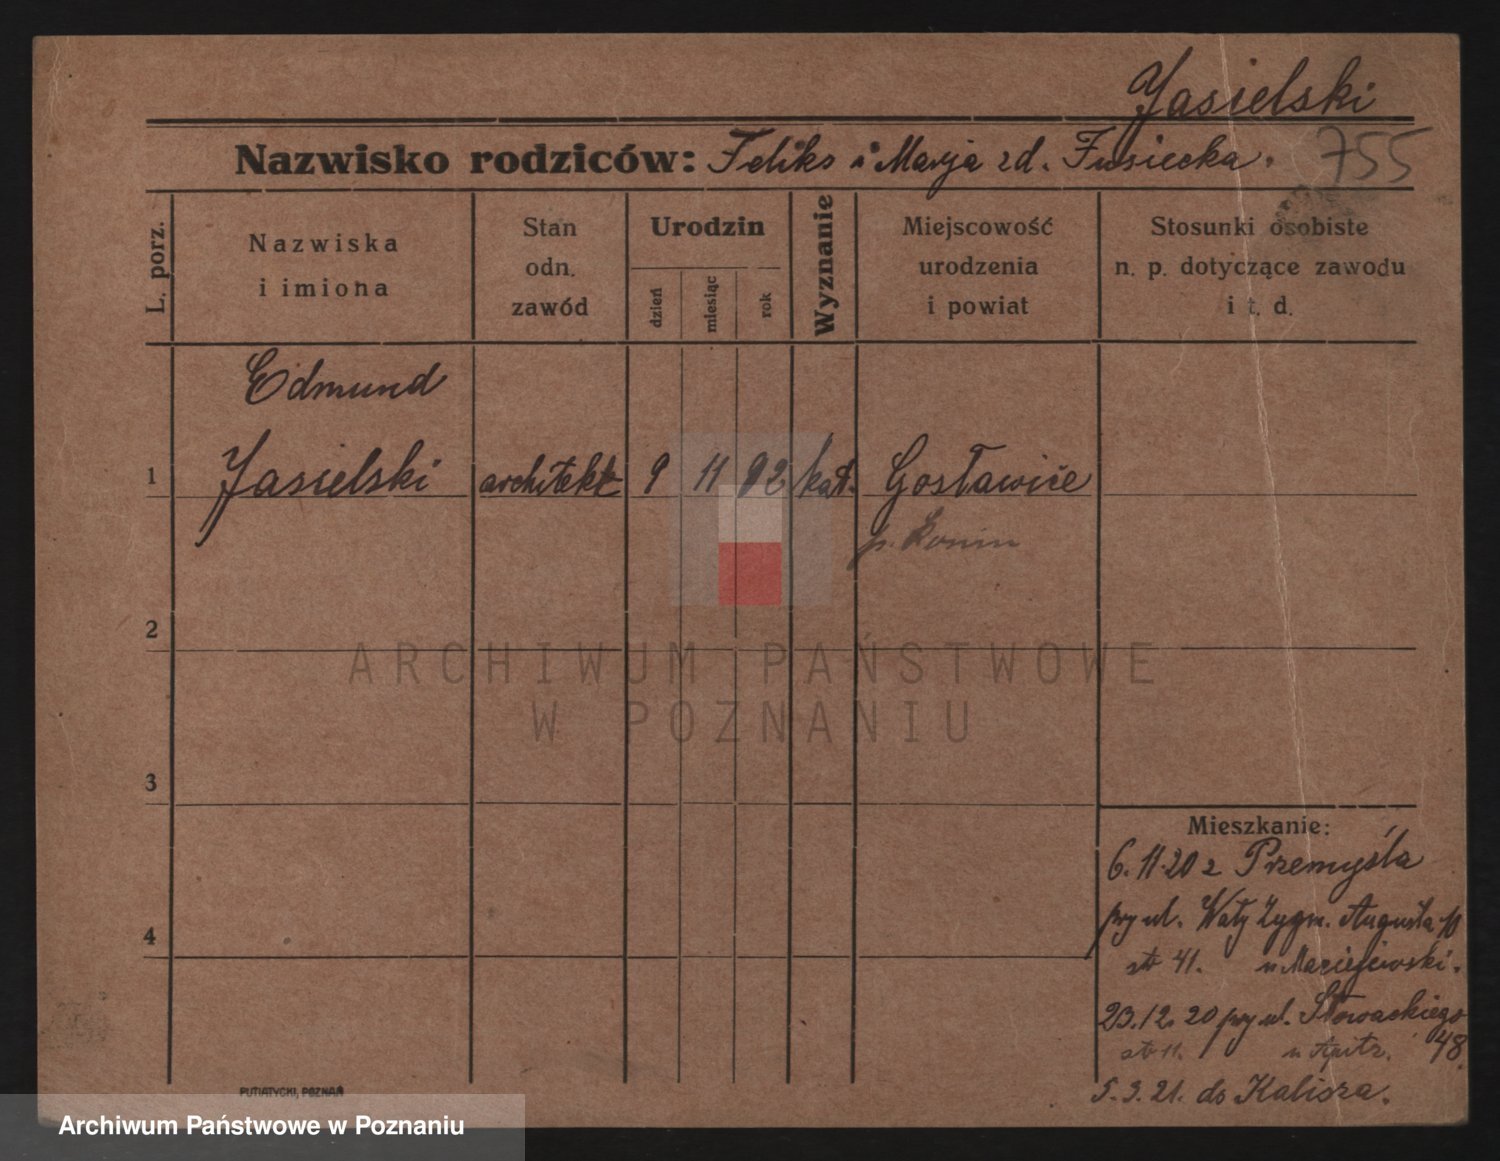 Jasielski
Nazwisko rodziców: Feliks i Marja zd. Fusiecka. 755
L. porz.
Nazwiska
i imiona
Stan
odn.
zawód
Urodzin
dzień
miesiąc
rok
Wyznanie
Miejscowość
urodzenia
i powiat
Stosunki osobiste
n. p. dotyczące zawodu
i t. d.
Edmund
1 Jasielski architekt 9 11 92 kat. Gosławice
p. Konin
2
3
4
ARCHIWUM PAŃSTWOWE
W POZNANIU
Mieszkanie:
6. 11. 20 z Przemyśla
przy ul. Wały Zygm. Augusta 10
41. u Maciejewski.
23. 12. 20 przy ul. Słowackiego
11. u 48.
5. 3. 21. do Kalisza.
PUTIATYCKI, POZNAŃ
Archiwum Państwowe w Poznaniu